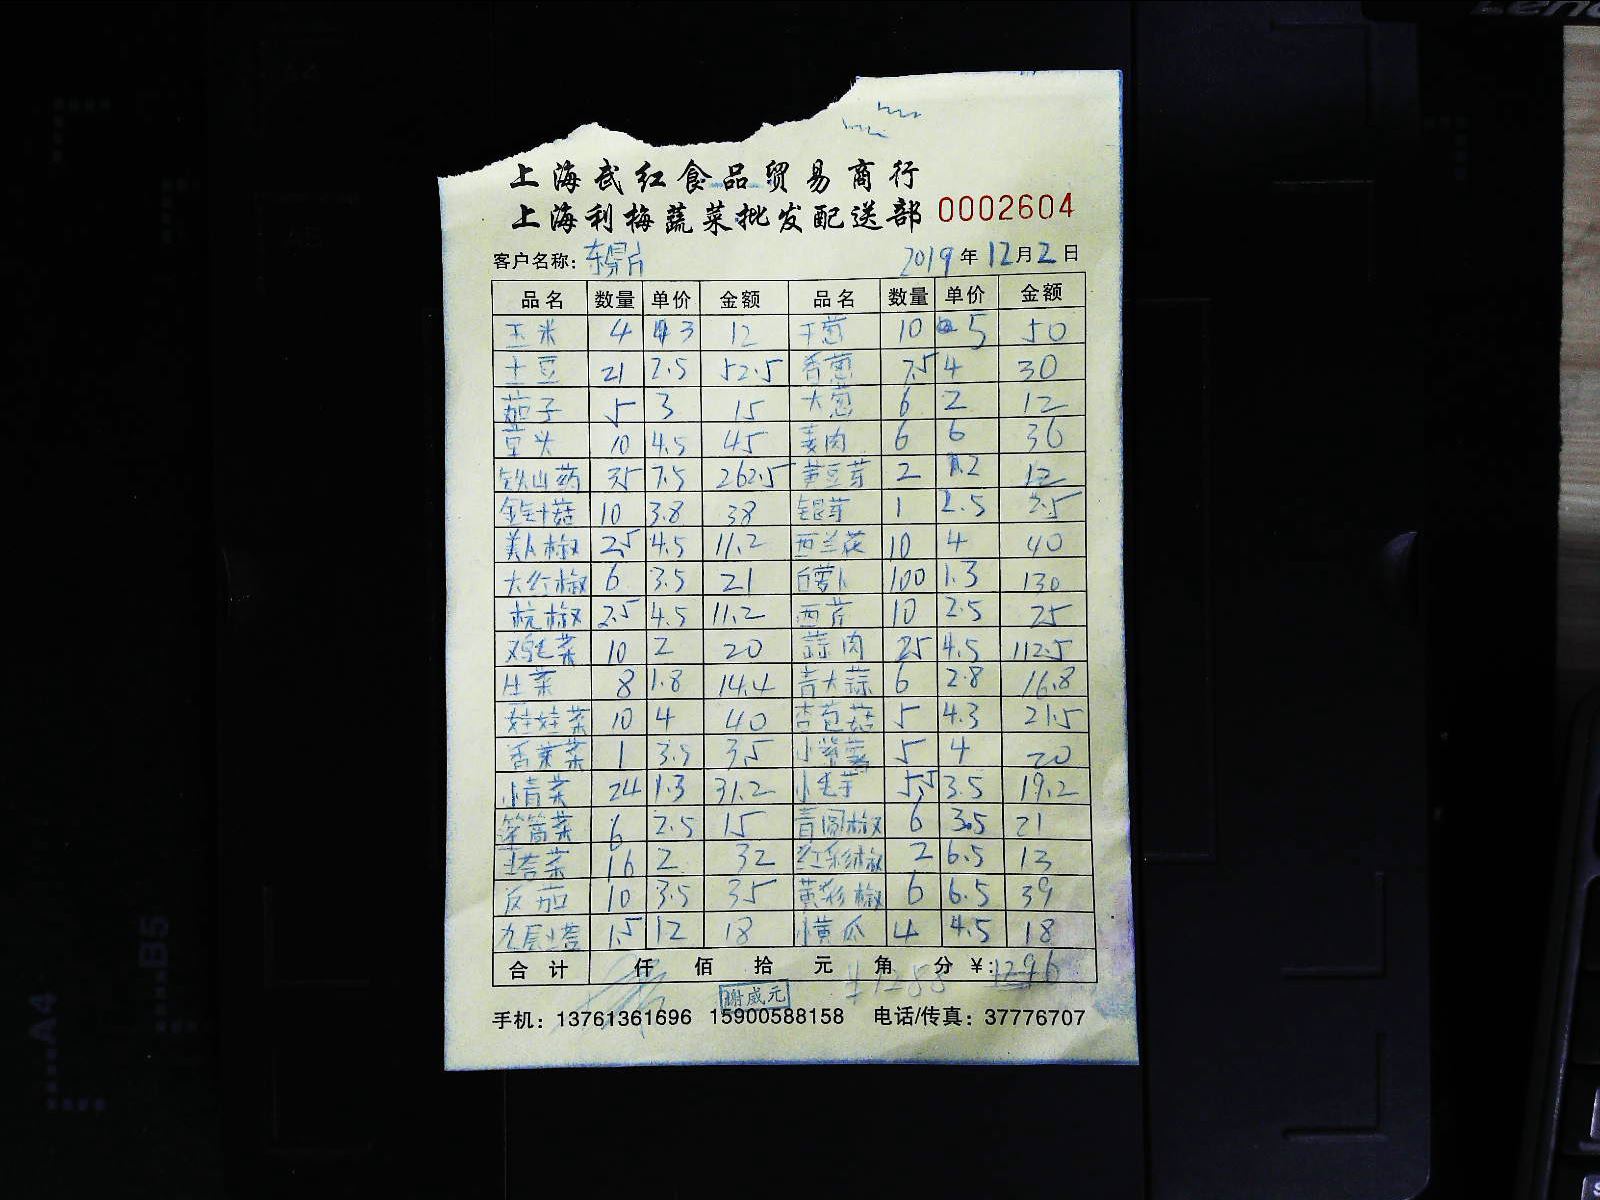 上海武红食品贸易商行
上海利梅蔬菜批发配送部 0002604
客户名称: 东鼎 2019年12月2日
品名 数量 单价 金额 品名 数量 单价 金额
玉米 4 3 12 干葱 10 5 50
土豆 21 2.5 52.5 香葱 7.5 4 30
茄子 5 3 15 大葱 6 2 12
芋头 10 4.5 45 姜肉 6 6 36
铁山药 35 7.5 262.5 黄豆芽 2 2 12
金针菇 10 3.8 38 银芽 1 2.5 2.5
美人椒 2.5 4.5 11.2 西兰花 10 4 40
大红椒 6 3.5 21 白萝卜 100 1.3 130
杭椒 2.5 4.5 11.2 西芹 10 2.5 25
鸡毛菜 10 2 20 蒜肉 25 4.5 112.5
生菜 8 1.8 14.4 青大蒜 6 2.8 16.8
娃娃菜 10 4 40 杏苞菇 5 4.3 21.5
香菜 1 3.5 3.5 小紫薯 5 4 20
小青菜 24 1.3 31.2 小毛芋 5.5 3.5 19.2
蓬蒿菜 6 2.5 15 青圆椒 6 3.5 21
塔菜 16 2 32 红彩椒 2 6.5 13
反茄 10 3.5 35 黄彩椒 6 6.5 39
九层塔 1.5 12 18 小黄瓜 4 4.5 18
合计 仟 佰 拾 元 角 分 ¥: 1296
¥1288
谢威元
手机: 13761361696 15900588158 电话/传真: 37776707